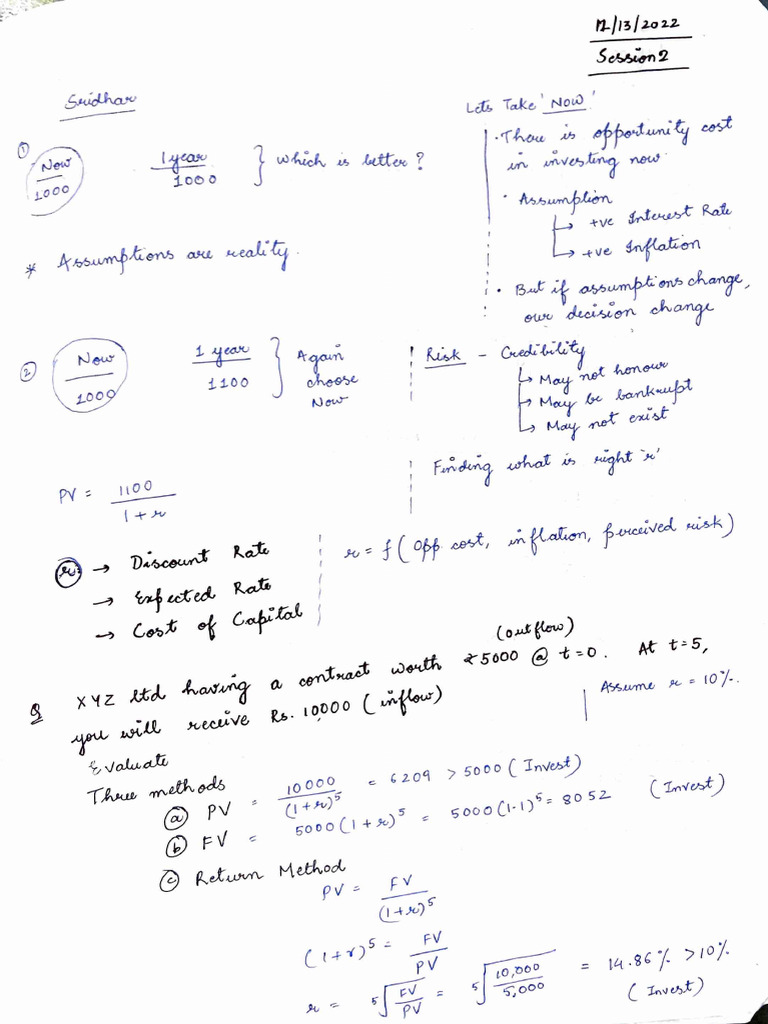 12/13/2022
Session 2
Sridhar
Lets Take 'NOW'
① Now 1 year } which is better?
1000 1000
· There is opportunity cost
in investing now.
· Assumption
↳ +ve Interest Rate
↳ +ve Inflation
* Assumptions are reality.
· But if assumptions change,
our decision change
② Now 1 year } Again
1000 1100 choose
Now
Risk - Credibility
↳ May not honour
↳ May be bankrupt
↳ May not exist
Finding what is right 'r'
PV = 1100 / 1+r
r → Discount Rate
→ Expected Rate
→ Cost of Capital
r = f(Opp cost, inflation, perceived risk)
Q XYZ ltd having a contract worth ₹5000 (outflow) @ t=0. At t=5,
you will receive Rs. 10000 (inflow)
Assume r = 10%.
Evaluate
Three methods
ⓐ PV = 10000 / (1+r)^5 = 6209 > 5000 (Invest)
ⓑ FV = 5000(1+r)^5 = 5000(1.1)^5 = 8052 (Invest)
ⓒ Return Method
PV = FV / (1+r)^5
(1+r)^5 = FV / PV
r = 5√(FV/PV) = 5√(10,000/5,000) = 14.86% > 10%
(Invest)